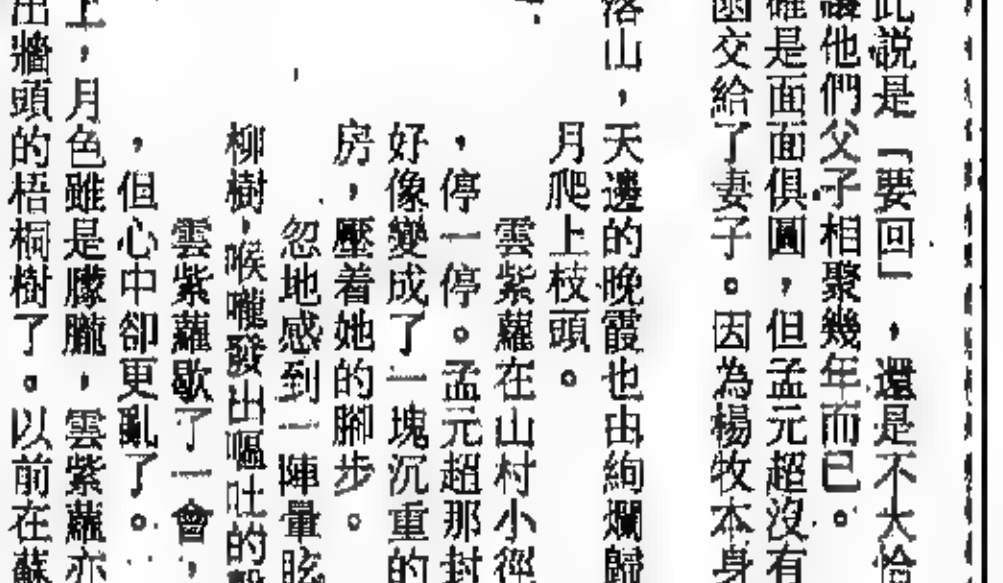 説是「要回」，還是不大恰
他們父子相聚幾年而已。
是面面俱圓，但孟元超沒有
交給了妻子。因為楊牧本身
落山，天邊的晚霞也由絢爛歸
月爬上枝頭。
雲紫蘿在山村小徑
，停一停。孟元超那封
好像變成了一塊沉重的
房，壓着她的腳步。
忽地感到一陣暈眩
柳樹，喉嚨發出嘔吐的
雲紫蘿歇了一會，
，但心中卻更亂了。
上，月色雖是朦朧，雲紫蘿亦
出牆頭的梧桐樹了。以前在蘇